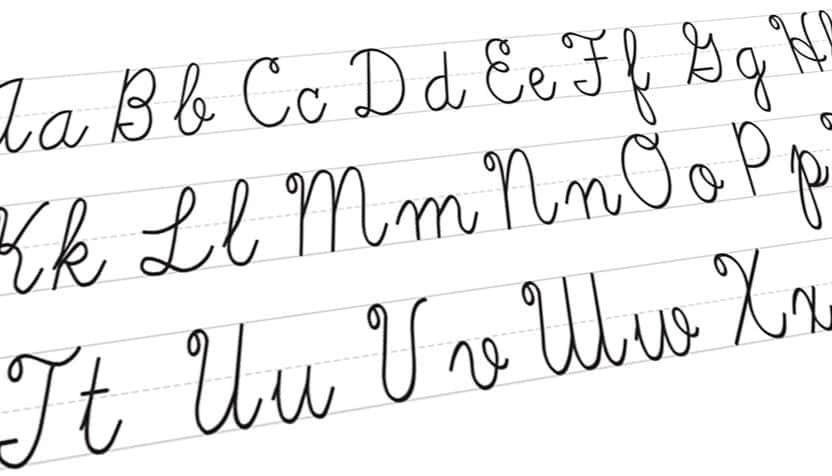 Aa Bb Cc Dd Ee Ff Gg H
Kk Ll Mm Nn Oo Pp
Tt Uu Vv Ww Xx